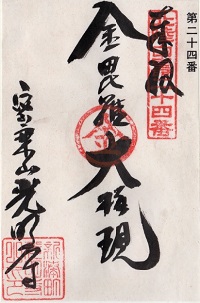 第二十四番
奉拝
金毘羅大権現
宝来山光明寺